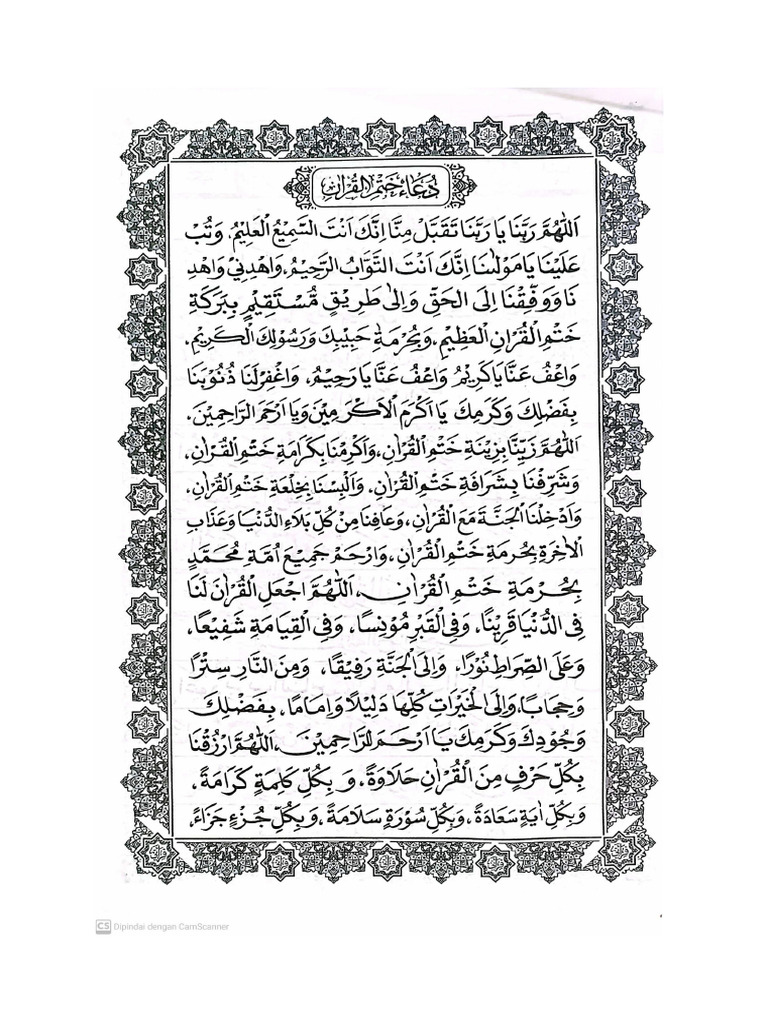 دُعَاءُ خَتْمِ الْقُرْاٰنِ
اَللّٰهُمَّ رَبَّنَا يَا رَبَّنَا تَقَبَّلْ مِنَّا اِنَّكَ اَنْتَ السَّمِيْعُ الْعَلِيْمُ، وَتُبْ
عَلَيْنَا يَا مَوْلٰىنَا اِنَّكَ اَنْتَ التَّوَّابُ الرَّحِيْمُ، وَاهْدِنِيْ وَاهْدِ
نَا وَوَفِّقْنَا اِلَى الْحَقِّ وَاِلٰى طَرِيْقٍ مُسْتَقِيْمٍ بِبَرَكَةِ
خَتْمِ الْقُرْاٰنِ الْعَظِيْمِ، وَبِحُرْمَةِ حَبِيْبِكَ وَرَسُوْلِكَ الْكَرِيْمِ،
وَاعْفُ عَنَّا يَا كَرِيْمُ وَاعْفُ عَنَّا يَا رَحِيْمُ، وَاغْفِرْلَنَا ذُنُوْبَنَا
بِفَضْلِكَ وَكَرَمِكَ يَا اَكْرَمَ الْاَكْرَمِيْنَ وَيَا اَرْحَمَ الرَّاحِمِيْنَ،
اَللّٰهُمَّ زَيِّنَّا بِزِيْنَةِ خَتْمِ الْقُرْاٰنِ، وَاَكْرِمْنَا بِكَرَامَةِ خَتْمِ الْقُرْاٰنِ،
وَشَرِّفْنَا بِشَرَافَةِ خَتْمِ الْقُرْاٰنِ، وَاَلْبِسْنَا بِخِلْعَةِ خَتْمِ الْقُرْاٰنِ،
وَاَدْخِلْنَا الْجَنَّةَ مَعَ الْقُرْاٰنِ، وَعَافِنَا مِنْ كُلِّ بَلَاءِ الدُّنْيَا وَعَذَابِ
الْاٰخِرَةِ بِحُرْمَةِ خَتْمِ الْقُرْاٰنِ، وَارْحَمْ جَمِيْعَ اُمَّةِ مُحَمَّدٍ
بِحُرْمَةِ خَتْمِ الْقُرْاٰنِ، اَللّٰهُمَّ اجْعَلِ الْقُرْاٰنَ لَنَا
فِى الدُّنْيَا قَرِيْنًا، وَفِى الْقَبْرِ مُوْنِسًا، وَفِى الْقِيَامَةِ شَفِيْعًا،
وَعَلَى الصِّرَاطِ نُوْرًا، وَاِلَى الْجَنَّةِ رَفِيْقًا، وَمِنَ النَّارِ سِتْرًا
وَحِجَابًا، وَاِلَى الْخَيْرَاتِ كُلِّهَا دَلِيْلًا وَاِمَامًا، بِفَضْلِكَ
وَجُوْدِكَ وَكَرَمِكَ يَا اَرْحَمَ الرَّاحِمِيْنَ، اَللّٰهُمَّ ارْزُقْنَا
بِكُلِّ حَرْفٍ مِنَ الْقُرْاٰنِ حَلَاوَةً، وَبِكُلِّ كَلِمَةٍ كَرَامَةً،
وَبِكُلِّ اٰيَةٍ سَعَادَةً، وَبِكُلِّ سُوْرَةٍ سَلَامَةً، وَبِكُلِّ جُزْءٍ جَزَاءً،
CS Dipindai dengan CamScanner